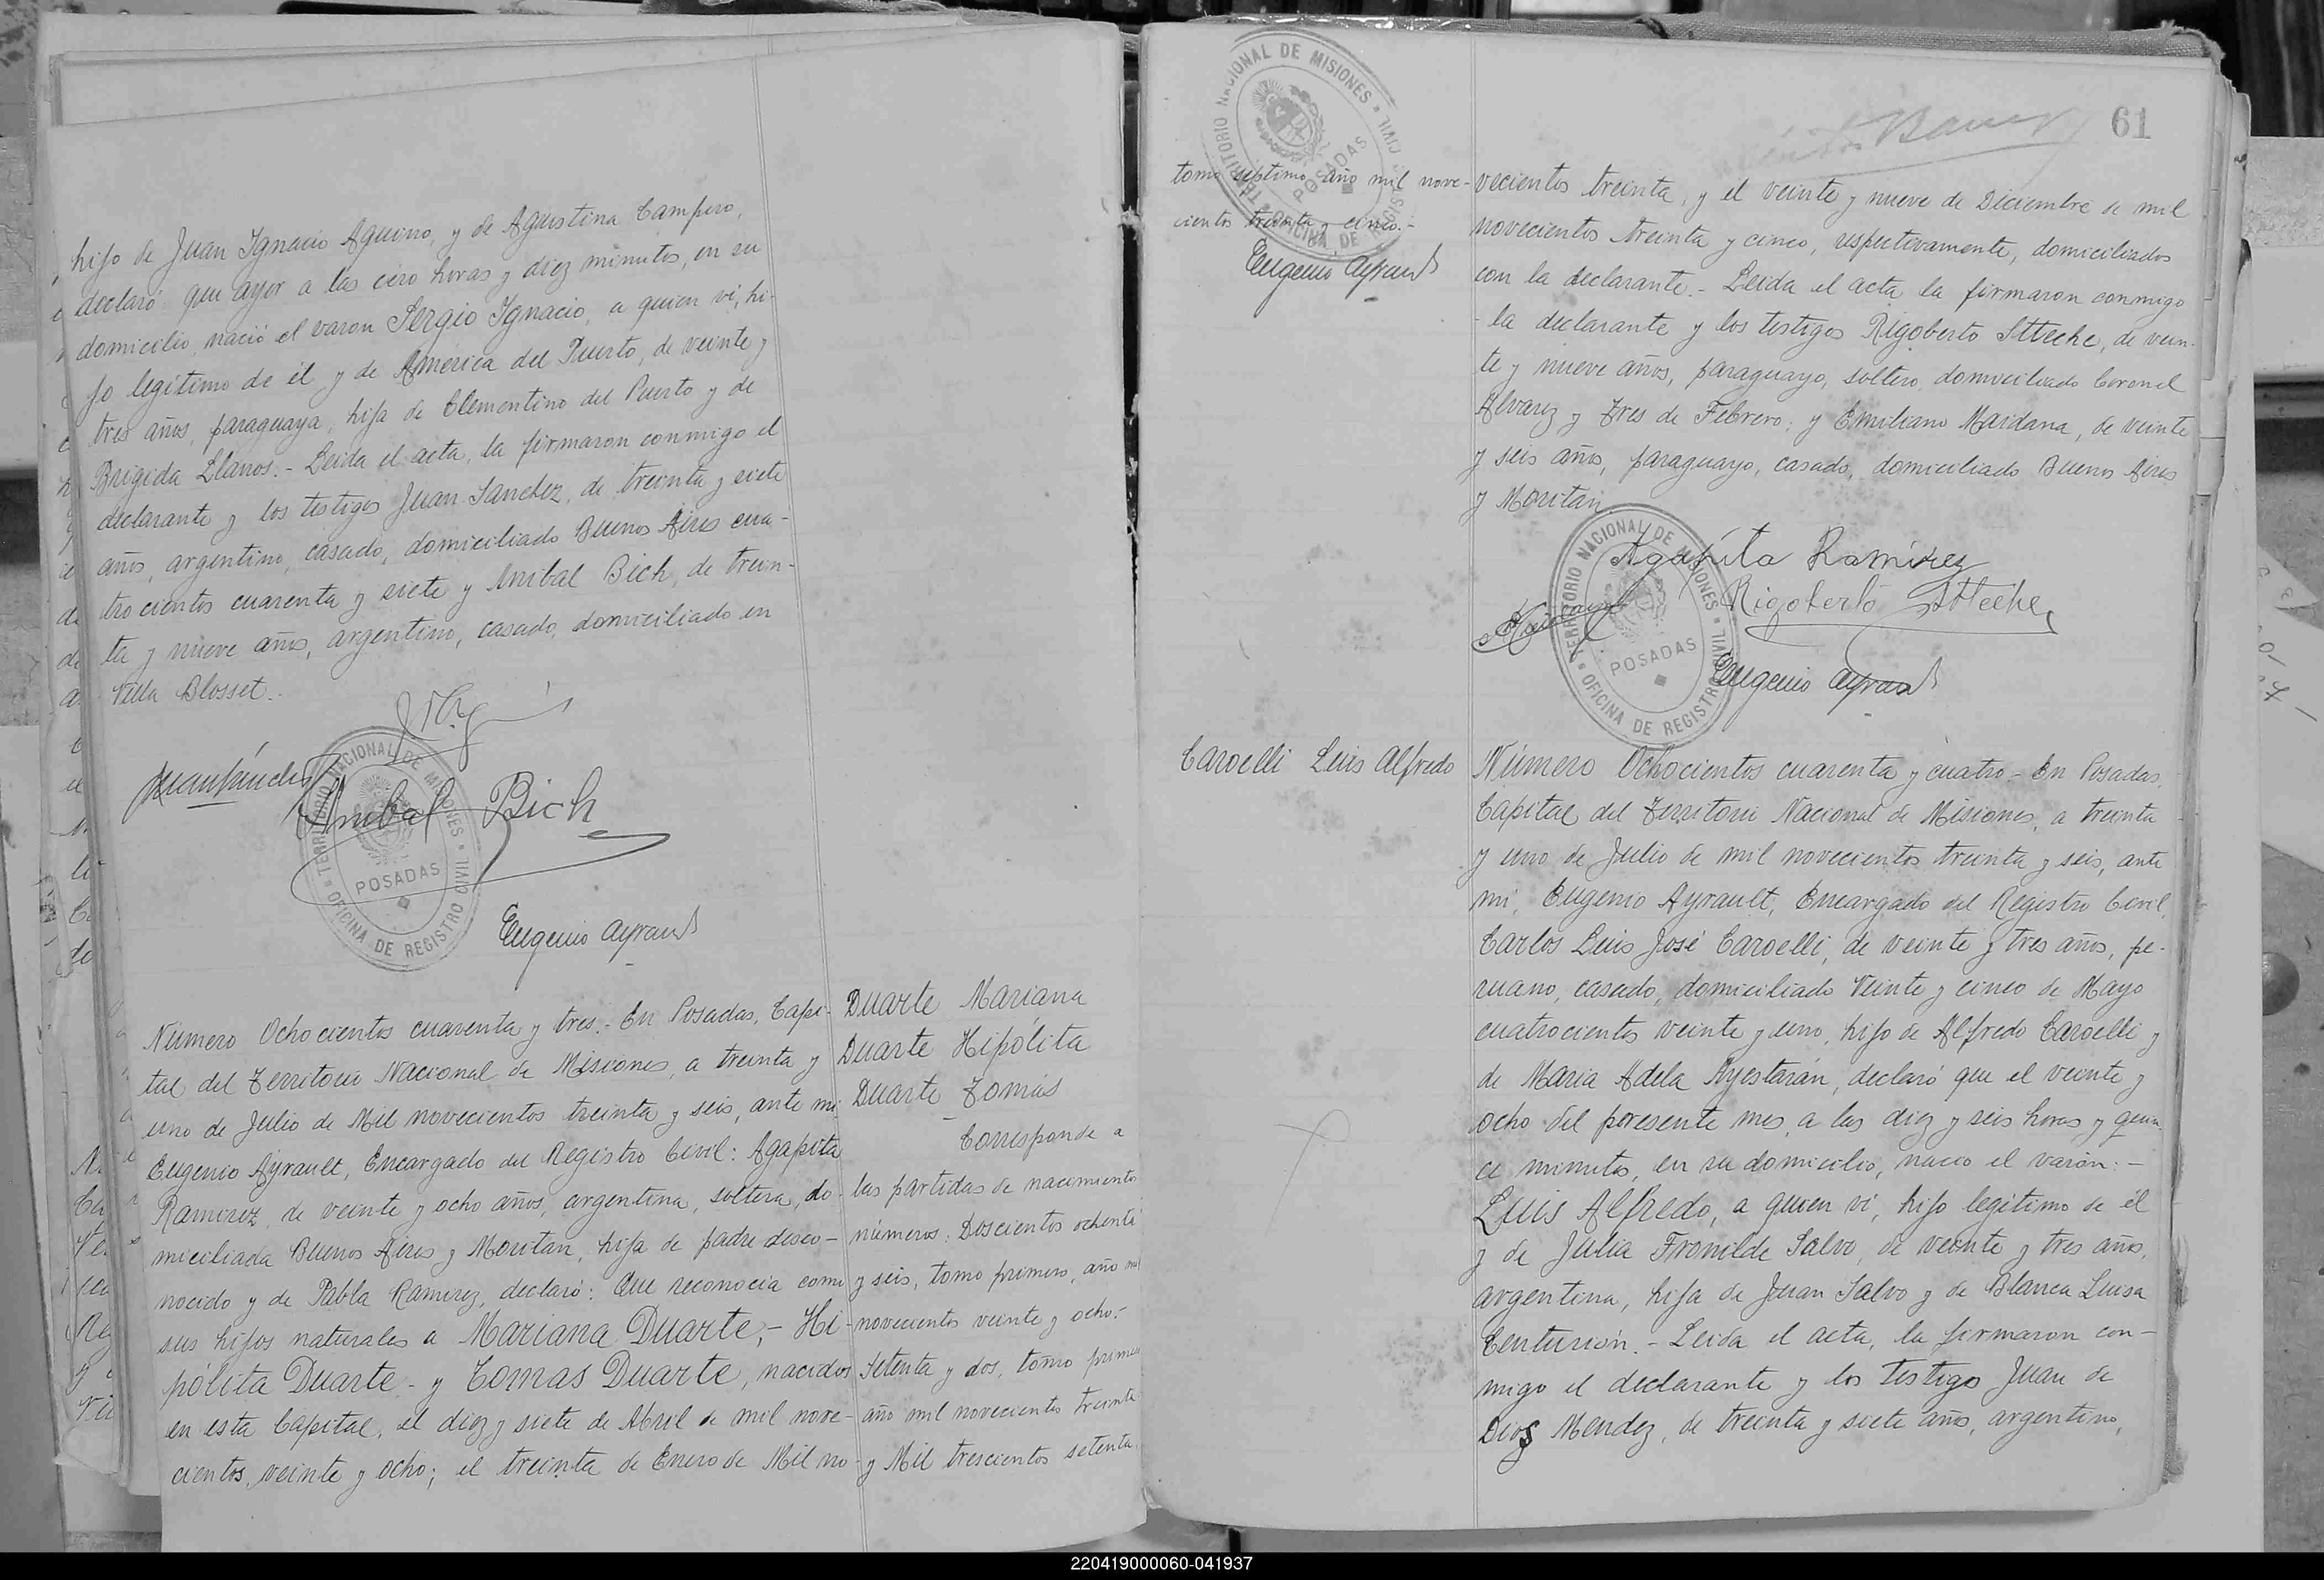 hijo de Juan Ignacio Aquino, y de Agustina Campero,
declaró que ayer a las cero horas y diez minutos, en su
domicilio, nació el varon Sergio Ignacio, a quien vi, hi-
jo legítimo de él y de América del Puerto, de veinte y
tres años, paraguaya, hija de Clementino del Puerto y de
Brigida Llanos.- Leida el acta, la firmaron conmigo el
declarante y los testigos Juan Sanchez, de treinta y siete
años, argentino, casado, domiciliado Buenos Aires cua-
trocientos cuarenta y siete y Anibal Bich, de trein-
ta y nueve años, argentino, casado, domiciliado en
Villa Blosset.-
Juan Sánchez
Anibal Bich
TERRITORIO NACIONAL DE MISIONES
POSADAS
OFICINA DE REGISTRO CIVIL
Eugenio Ayrault
Número Ochocientos cuarenta y tres.- En Posadas, Capi-
tal del Territorio Nacional de Misiones, a treinta y
uno de Julio de Mil novecientos treinta y seis, ante mi
Eugenio Ayrault, Encargado del Registro Civil: Agapita
Ramirez, de veinte y ocho años, argentina, soltera, do-
miciliada Buenos Aires y Moritán, hija de padre desco-
nocido y de Pabla Ramirez, declaró: Que reconocia como
sus hijos naturales a Mariana Duarte,- Hi-
pólita Duarte- y Tomas Duarte, nacidos
en esta Capital, el diez y siete de Abril de mil nove-
cientos, veinte y ocho; el treinta de Enero de Mil no-
Duarte Mariana
Duarte Hipólita
Duarte Tomás
Corresponde a
las partidas de nacimiento
números: Doscientos ochenta
y seis, tomo primero, año mil
novecientos veinte y ocho.-
Setenta y dos, tomo primero
año mil novecientos treinta
y Mil trescientos setenta,
61
TERRITORIO NACIONAL DE MISIONES
POSADAS
OFICINA DE REGISTRO CIVIL
tomo séptimo, año mil nove-
cientos treinta y cinco.-
Eugenio Ayrault
vecientos treinta, y el veinte y nueve de Diciembre de mil
novecientos treinta y cinco, respectivamente, domiciliados
con la declarante.- Leida el acta la firmaron conmigo
la declarante y los testigos Rigoberto Stteche, de vein-
te y nueve años, paraguayo, soltero, domiciliado Coronel
Alvarez y Tres de Febrero; y Emiliano Maidana, de veinte
y seis años, paraguayo, casado, domiciliado Buenos Aires
y Moritán
Agapita Ramirez
Rigoberto Stteche
TERRITORIO NACIONAL DE MISIONES
POSADAS
OFICINA DE REGISTRO CIVIL
Eugenio Ayrault
Caroelli Luis Alfredo
Número Ochocientos cuarenta y cuatro- En Posadas,
Capital del Territorio Nacional de Misiones, a treinta
y uno de Julio de mil novecientos treinta y seis, ante
mi, Eugenio Ayrault, Encargado del Registro Civil,
Carlos Luis José Caroelli, de veinte y tres años, pe-
ruano, casado, domiciliado Veinte y cinco de Mayo
cuatrocientos veinte y uno, hijo de Alfredo Caroelli y
de Maria Adela Ayestarán, declaró que el veinte y
ocho del presente mes, a las diez y seis horas y quin-
ce minutos, en su domicilio, nacio el varón:-
Luis Alfredo, a quien vi, hijo legitimo de él
y de Julia Fronilde Salvo, de veinte y tres años,
argentina, hija de Juan Salvo y de Blanca Luisa
Centurión.- Leida el acta, la firmaron con-
migo el declarante y los testigos Juan de
Dios Mendez, de treinta y siete años, argentino,
220419000060-041937